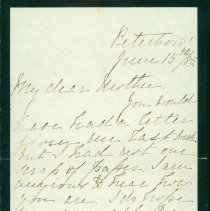 Peterboro'
June 15th/85
My dear Mother
You would
have had a letter
from me last week
but I had not one
scrap of paper. I am
anxious to hear how
you are. I do hope